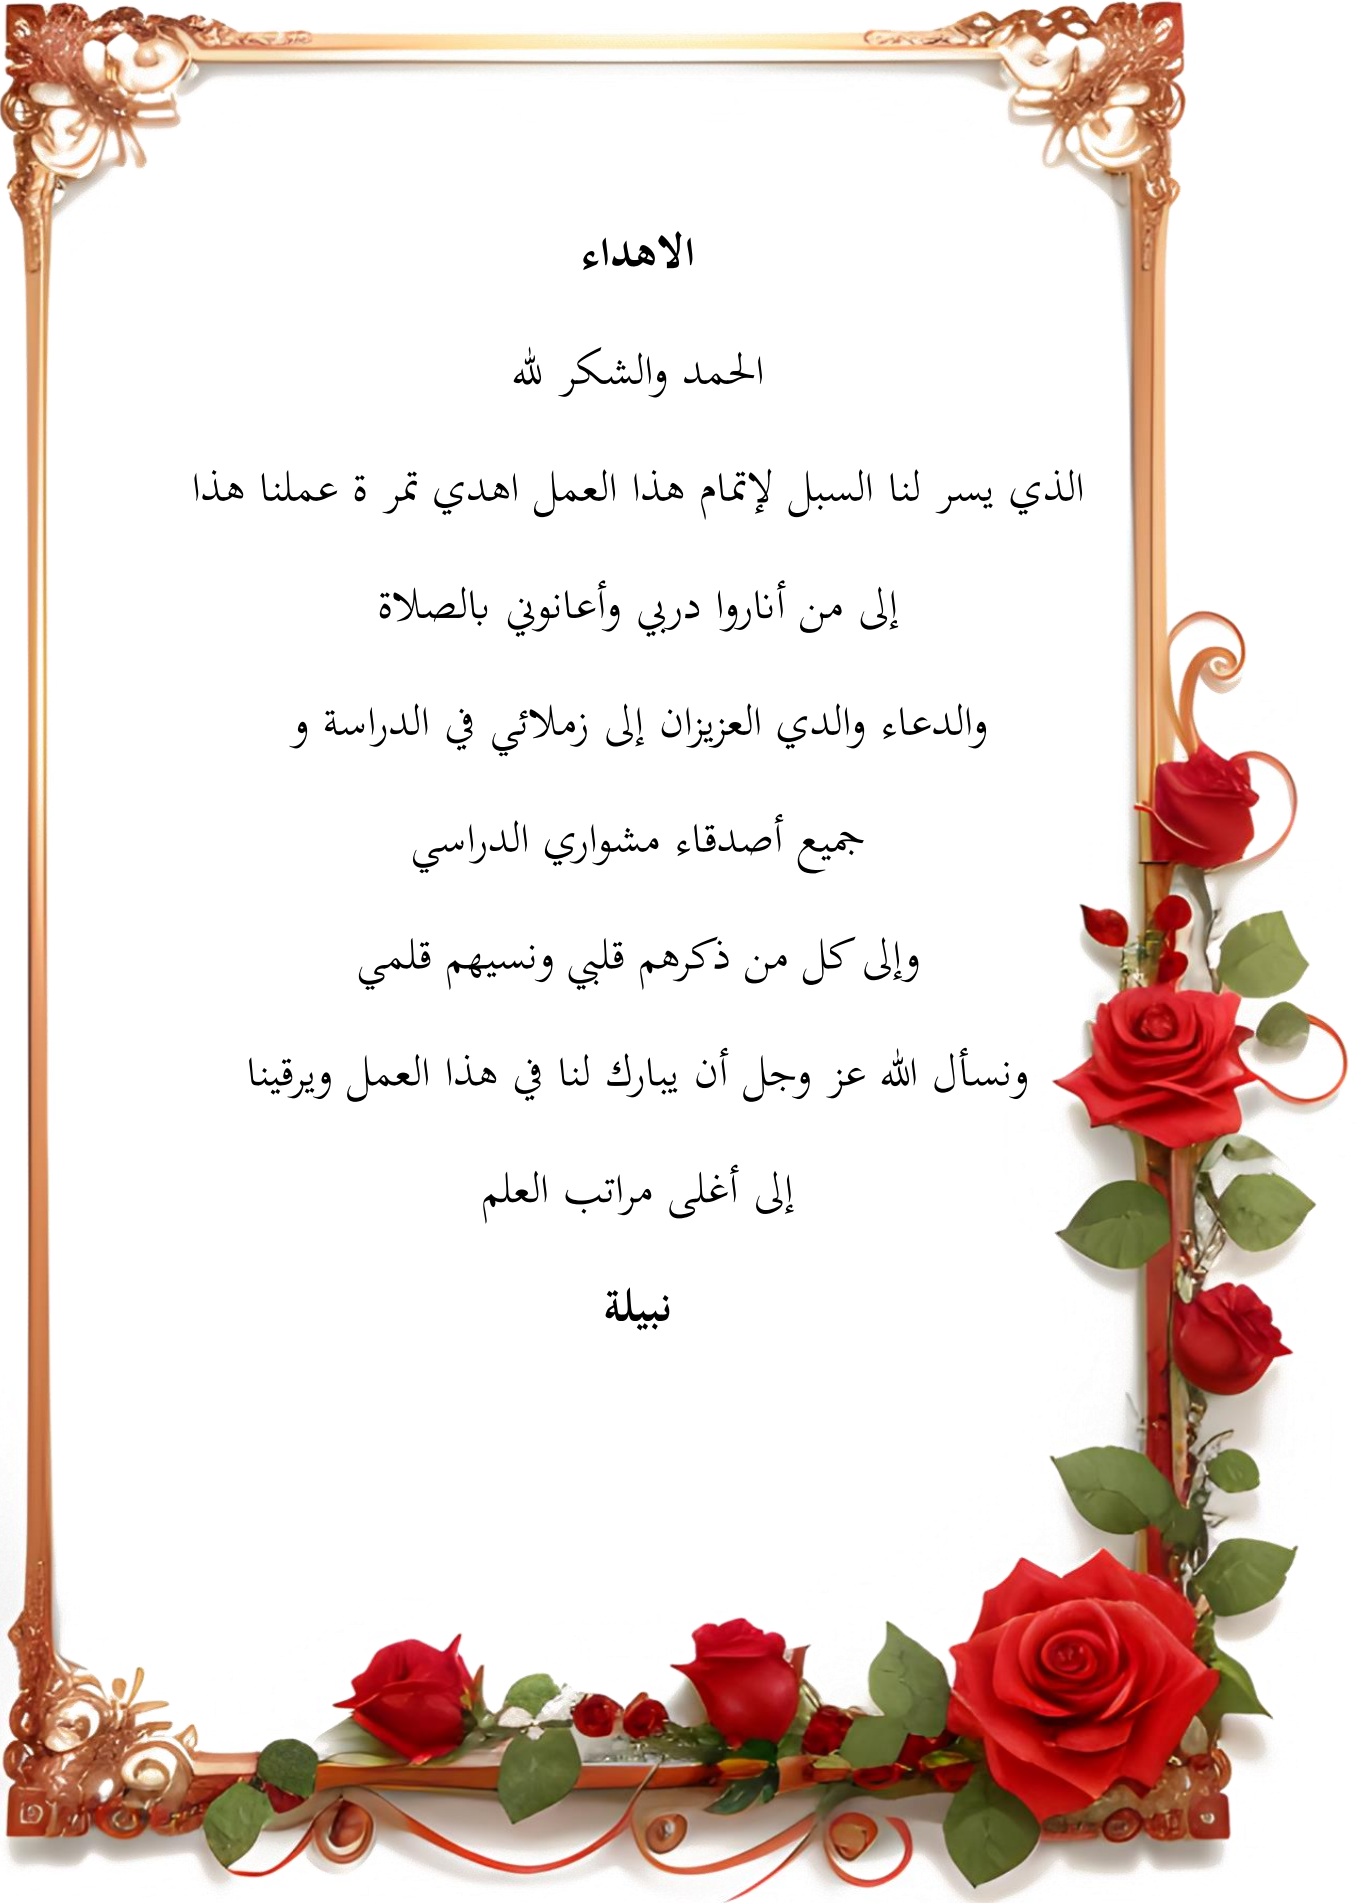 الاهداء
الحمد والشكر لله
الذي يسر لنا السبل لإتمام هذا العمل اهدي تمر ة عملنا هذا
إلى من أناروا دربي وأعانوني بالصلاة
والدعاء والدي العزيزان إلى زملائي في الدراسة و
جميع أصدقاء مشواري الدراسي
وإلى كل من ذكرهم قلبي ونسيهم قلمي
ونسأل الله عز وجل أن يبارك لنا في هذا العمل ويرقينا
إلى أغلى مراتب العلم
نبيلة